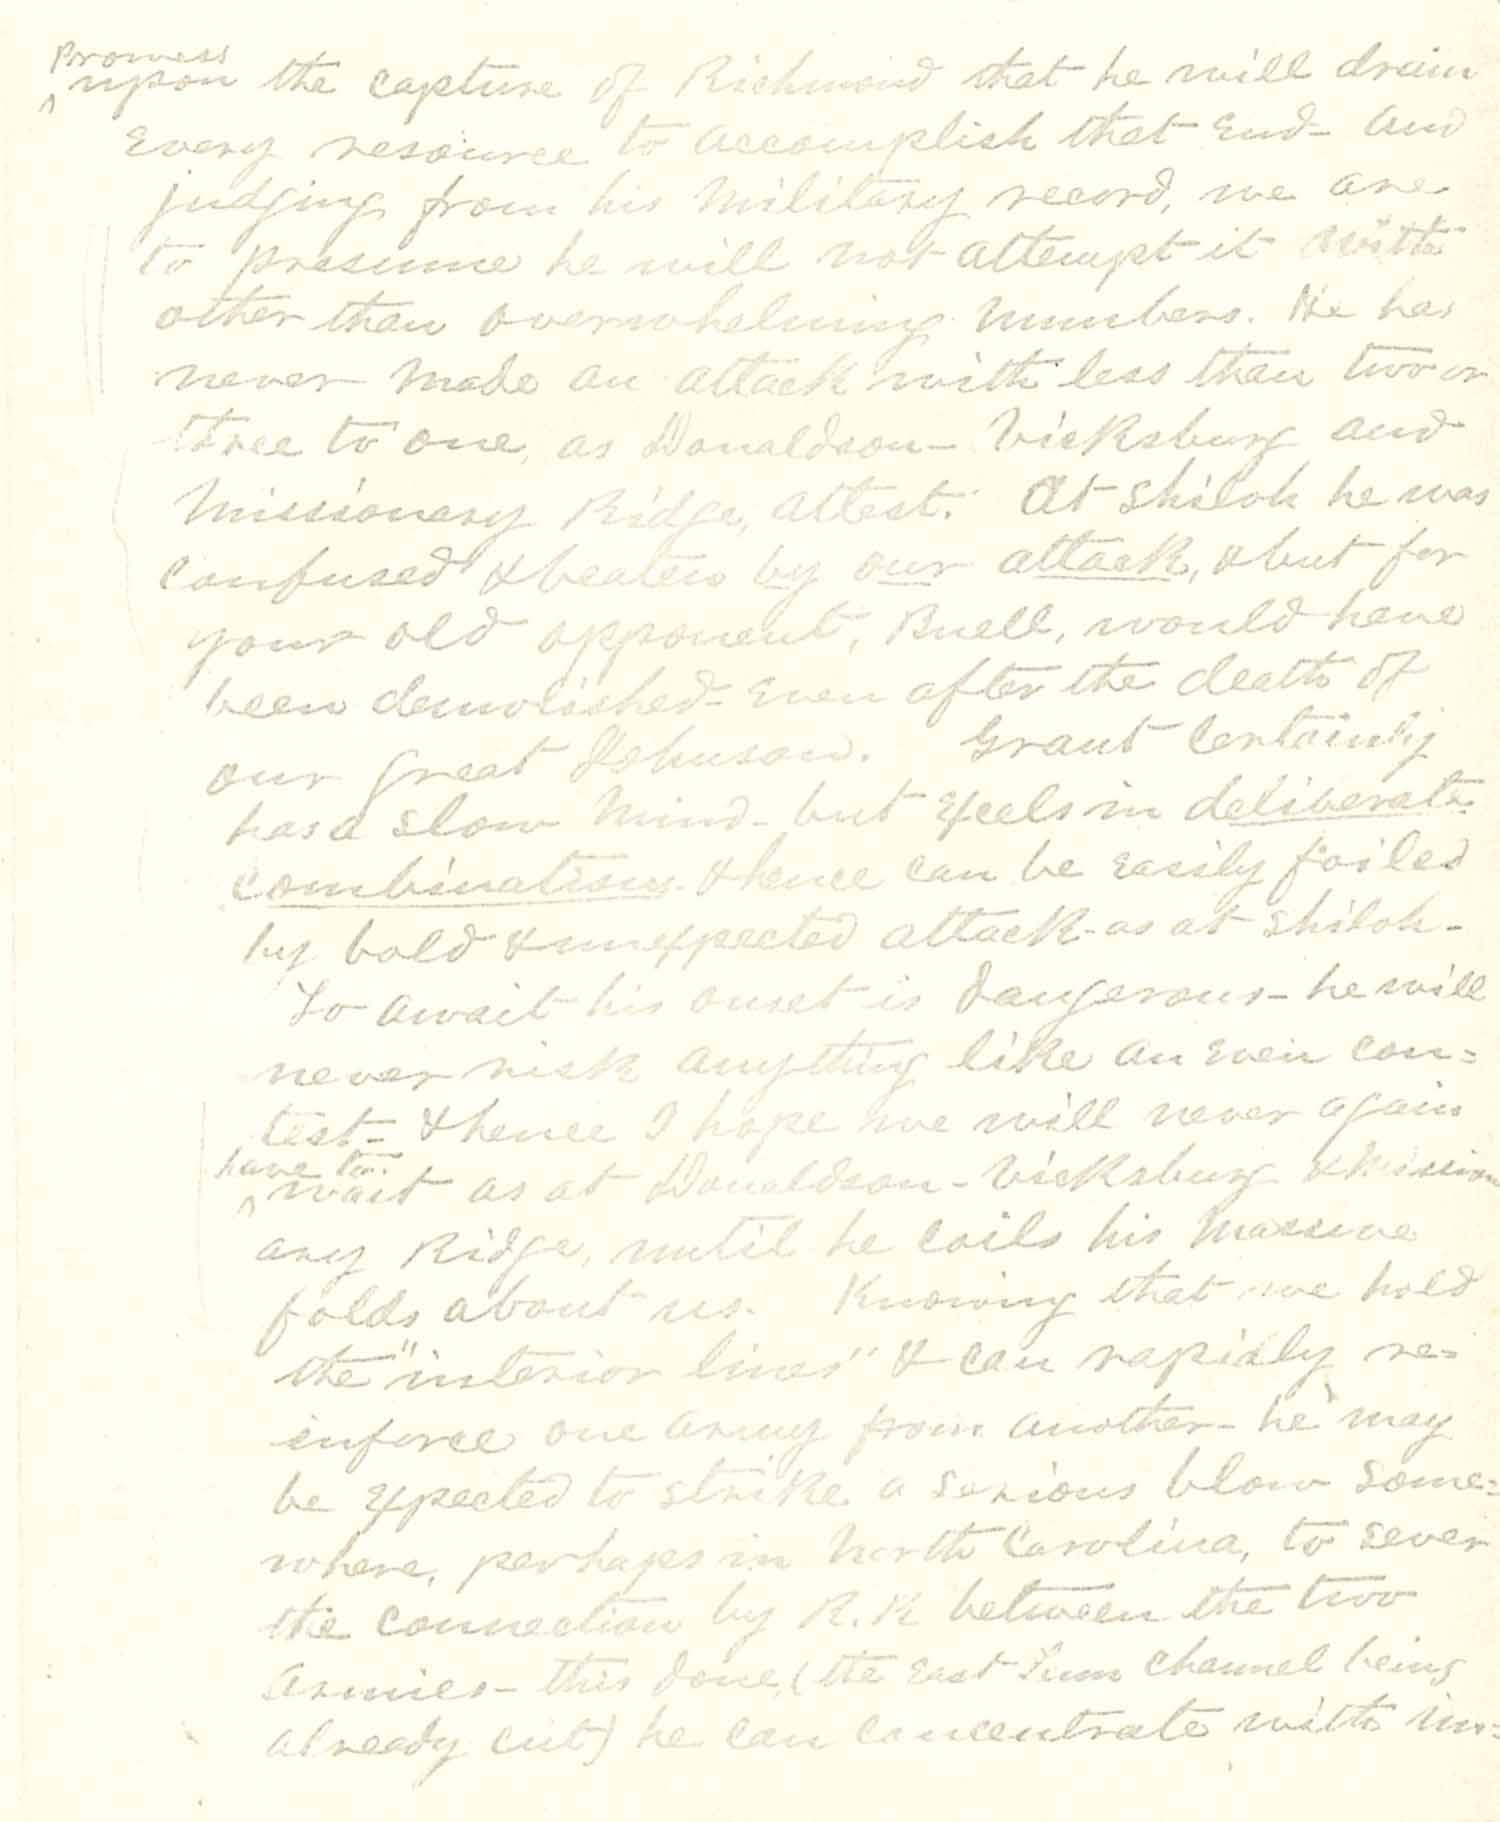 prowess
upon the capture of Richmond that he will drain
every resource to accomplish that end - and
judging from his military record, we are
to presume he will not attempt it with
other than overwhelming numbers. He has
never made an attack with less than two or
three to one, as Donaldson - Vicksburg and
Missionary Ridge, attest. At Shiloh he was
confused & beaten by our attack, & but for
your old opponent, Buell, would have
been demolished - even after the death of
our great Johnson. Grant certainly
has a slow mind - but excels in deliberate
combinations & hence can be easily foiled
by bold & unexpected attack - as at Shiloh -
To await his onset is dangerous - he will
never risk anything like an even con=
test - & hence I hope we will never again
have to
wait as at Donaldson - Vicksburg & Mission
ary Ridge, until he coils his massive
folds about us. Knowing that we hold
the "interior lines" & can rapidly re=
inforce one army from another - he may
be expected to strike a serious blow some=
where, perhaps in North Carolina, to sever
the connection by R.R between the two
armies - this done, (the East Tenn channel being
already cut) he can concentrate with im=